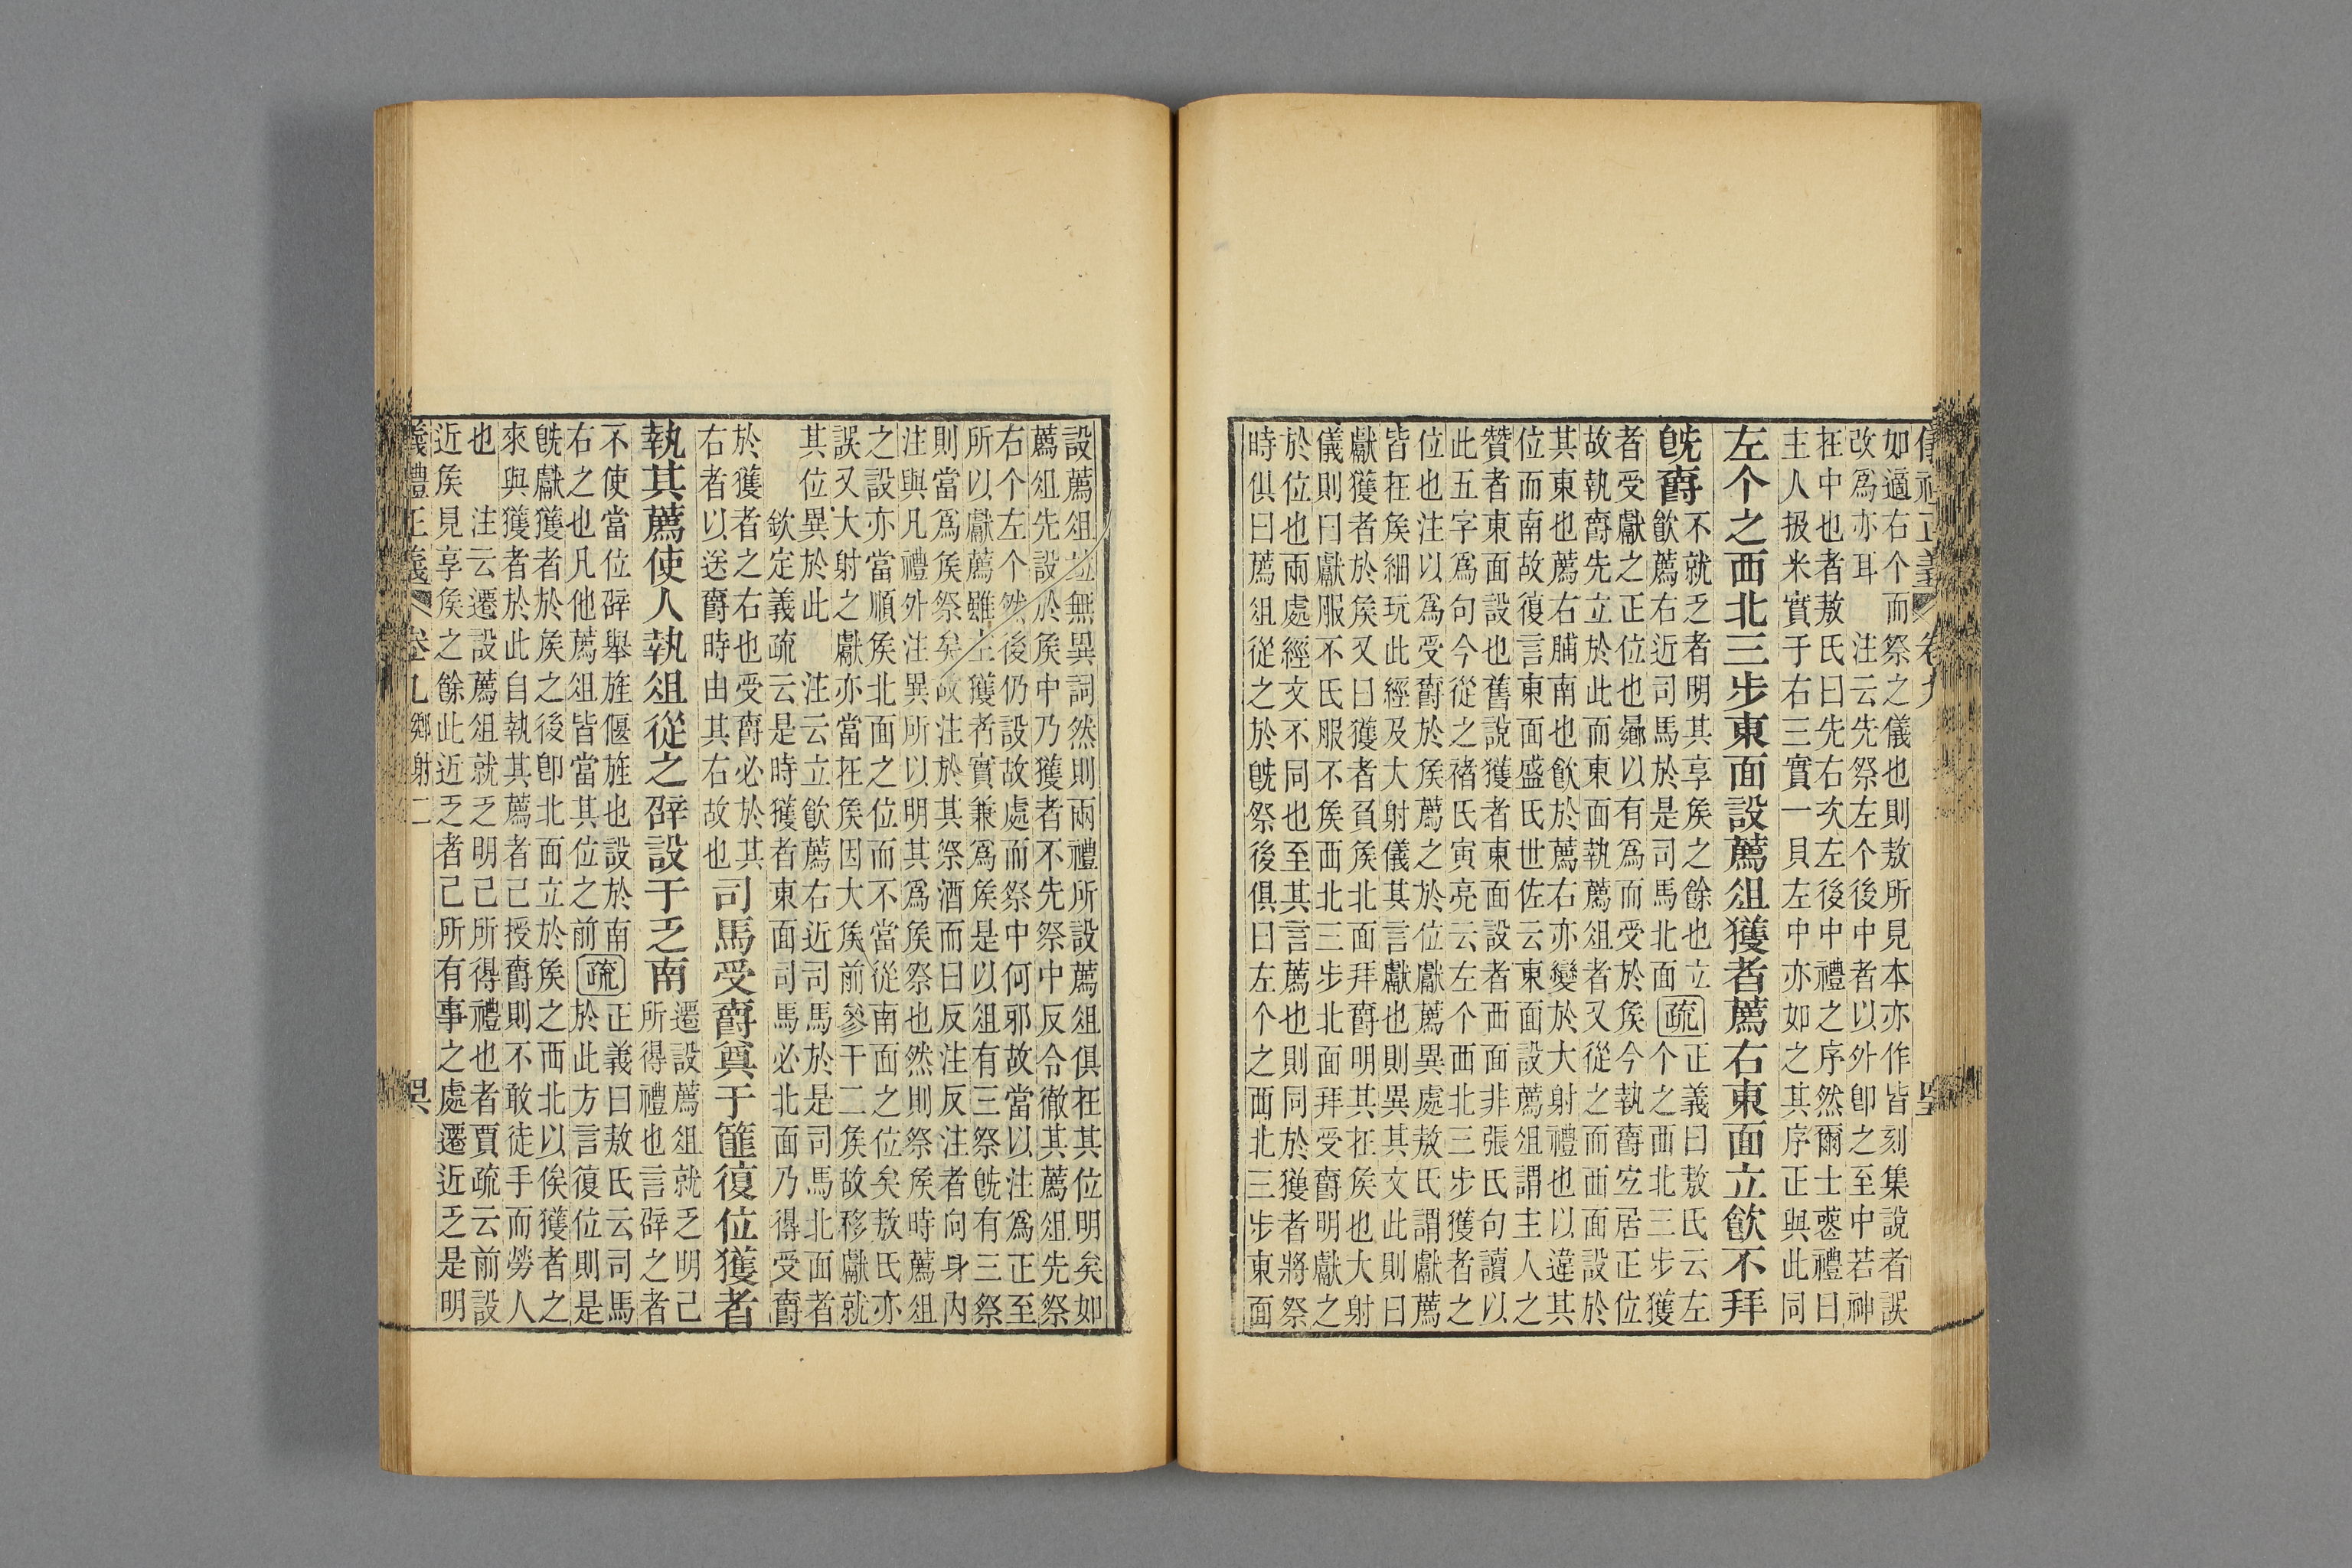 如適右个而祭之儀也則敖所見本亦作皆刻集說者誤
改爲亦耳　注云先祭左个後中者以外卽之至中若神
在中也者敖氏曰先右次左後中禮之序然爾士虞禮曰
主人扱米實于右三實一貝左中亦如之其序正與此同
左个之西北三步東面設薦俎獲者薦右東面立飮不拜
旣爵
不就乏者明其享矦之餘也立
飮薦右近司馬於是司馬北面
疏
正義曰敖氏云左
个之西北三步獲
者受獻之正位也曏以有爲而受於矦今執爵宐居正位
故執爵先立於此而東面執薦俎者又從之而西面設於
其東也薦右脯南也飮於薦右亦變於大射禮也以違其
位而南故復言東面盛氏世佐云東面設薦俎謂主人之
贊者東面設也舊說獲者東面設者西面非張氏句讀以
此五字爲句今從之褚氏寅亮云左个西北三步獲者之
位也注以爲受爵於矦薦之於位獻薦異處敖氏謂獻薦
皆在矦細玩此經及大射儀其言獻也則異其文此則曰
獻獲者於矦又曰獲者負矦北面拜爵明其在矦也大射
儀則曰獻服不氏服不矦西北三步北面拜受爵明獻之
於位也兩處經文不同也至其言薦也則同於獲者將祭
時俱曰薦俎從之於旣祭後俱曰左个之西北三步東面
設薦俎並無異詞然則兩禮所設薦俎俱在其位明矣如
薦俎先設於矦中乃獲者不先祭中反令徹其薦俎先祭
右个左个然後仍設故處而祭中何邪故當以注爲正至
所以獻薦雖主獲者實兼爲矦是以俎有三祭旣有三祭
則當爲矦祭矣故注於其祭酒而曰反注反注者向身內
注與凡禮外注異所以明其爲矦祭也然則祭矦時薦俎
之設亦當順矦北面之位而不當從南面之位矣敖氏亦
誤又大射之獻亦當在矦因大矦前參干二矦故移獻就
其位異於此　注云立飮薦右近司馬於是司馬北面者
欽定義疏云是時獲者東面司馬必北面乃得受爵
於獲者之右也受爵必於其
右者以送爵時由其右故也
司馬受爵奠于篚復位獲者
執其薦使人執俎從之辟設于乏南
遷設薦俎就乏明己
所得禮也言辟之者
不使當位辟舉旌偃旌也設於南
右之也凡他薦俎皆當其位之前
疏
正義曰敖氏云司馬
於此方言復位則是
旣獻獲者於矦之後卽北面立於矦之西北以俟獲者之
來與獲者於此自執其薦者己授爵則不敢徒手而勞人
也　注云遷設薦俎就乏明己所得禮也者賈疏云前設
近矦見享矦之餘此近乏者己所有事之處遷近乏是明